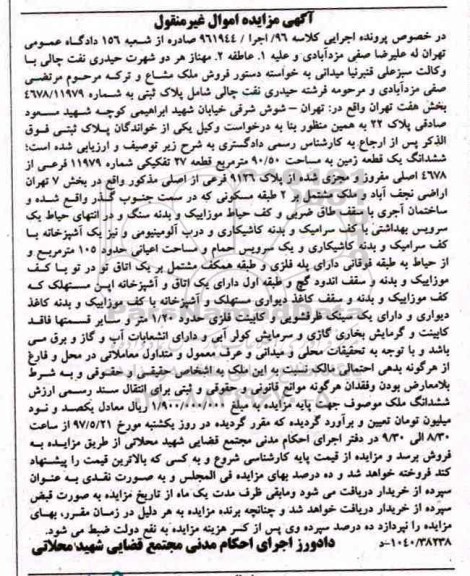 آگهی مزایده اموال غیرمنقول
در خصوص پرونده اجرایی کلاسه ۹۶/ اجرا / ۹۶۱۹۴۴ صادره از شعبه ۱۵۶ دادگاه عمومی
تهران له علیرضا صفی مزدآبادی و علیه ۱. عاطفه ۲. مهناز هر دو شهرت حیدری نفت چالی با
وکالت سبزعلی قنبرنیا میدانی به خواسته دستور فروش ملک مشاع و ترکه مرحوم مرتضی
صفی مزدآبادی و مرحومه فرشته حیدری نفت چالی شامل پلاک ثبتی به شماره ۴۶۷۸/۱۱۹۷۹
بخش هفت تهران واقع در: تهران – شوش شرقی خیابان شهید ابراهیمی کوچه شهید مسعود
صادقی پلاک ۲۲ به همین منظور بنا به درخواست وکیل یکی از خواندگان پلاک ثبتی فوق
الذکر پس از ارجاع به کارشناس رسمی دادگستری به شرح زیر توصیف و ارزیابی شده است؛
ششدانگ یک قطعه زمین به مساحت ۹۰/۵۰ مترمربع قطعه ۲۷ تفکیکی شماره ۱۱۹۷۹ فرعی از
۴۶۷۸ اصلی مفروز و مجزی شده از پلاک ۹۱۲۶ فرعی از اصلی مذکور واقع در بخش ۷ تهران
اراضی نجف آباد و ملک مشتمل بر ۲ طبقه مسکونی که در سمت جنوب گذر واقع شده و
ساختمان آجری با سقف طاق ضربی و کف حیاط موزاییک و بدنه سنگ و در انتهای حیاط یک
سرویس بهداشتی با کف سرامیک و بدنه کاشیکاری و درب آلومینیومی و نیز یک آشپزخانه با
کف سرامیک و بدنه کاشیکاری و یک سرویس حمام و مساحت اعیانی حدود ۱۰۵ مترمربع و
از حیاط به طبقه فوقانی دارای پله فلزی و طبقه همکف مشتمل بر یک اتاق تو در تو با کف
موزاییک و بدنه و سقف اندود گچ و طبقه اول دارای یک اتاق و آشپزخانه اپن مستهلک که
کف موزاییک و بدنه و سقف کاغذ دیواری مستهلک و آشپزخانه با کف موزاییک و بدنه کاغذ
دیواری و دارای یک سینک ظرفشویی و کابینت فلزی حدود ۱/۲۰ متر و سایر قسمتها فاقد
کابینت و گرمایش بخاری گازی و سرمایش کولر آبی و دارای انشعابات آب و گاز و برق می
باشد و با توجه به تحقیقات محلی و میدانی و عرف معمول و متداول معاملاتی در محل و فارغ
از هرگونه بدهی احتمالی مالک نسبت به این ملک به اشخاص حقیقی و حقوقی و به شرط
بلامعارض بودن وفقدان هرگونه موانع قانونی و حقوقی و ثبتی برای انتقال سند رسمی ارزش
ششدانگ ملک موصوف جهت پایه مزایده به مبلغ ریال معادل یکصد و نود
میلیون تومان تعیین و برآورد گردیده که مقرر گردیده در روز یکشنبه مورخ ۹۷/۵/۲۱ از ساعت
۸/۳۰ الی ۹/۳۰ در دفتر اجرای احکام مدنی مجتمع قضایی شهید محلاتی از طریق مزایده به
فروش برسد و مزایده از قیمت پایه کارشناسی شروع و به کسی که بالاترین قیمت را پیشنهاد
کند فروخته خواهد شد و ده درصد بهای مزایده فی المجلس و به صورت نقدی به عنوان
سپرده از خریدار دریافت می شود ومابقی ظرف مدت یک ماه از تاریخ مزایده به صورت قبض
سپرده از خریدار دریافت خواهد شد و چنانچه برنده مزایده به هر دلیل در زمان مقرر، بهای
مزایده را نپردازد ده درصد سپرده وی پس از کسر هزینه مزایده به نفع دولت ضبط می شود.
۱۰۴۰/۳۸۲۳۸-د دادورز اجرای احکام مدنی مجتمع قضایی شهید محلاتی